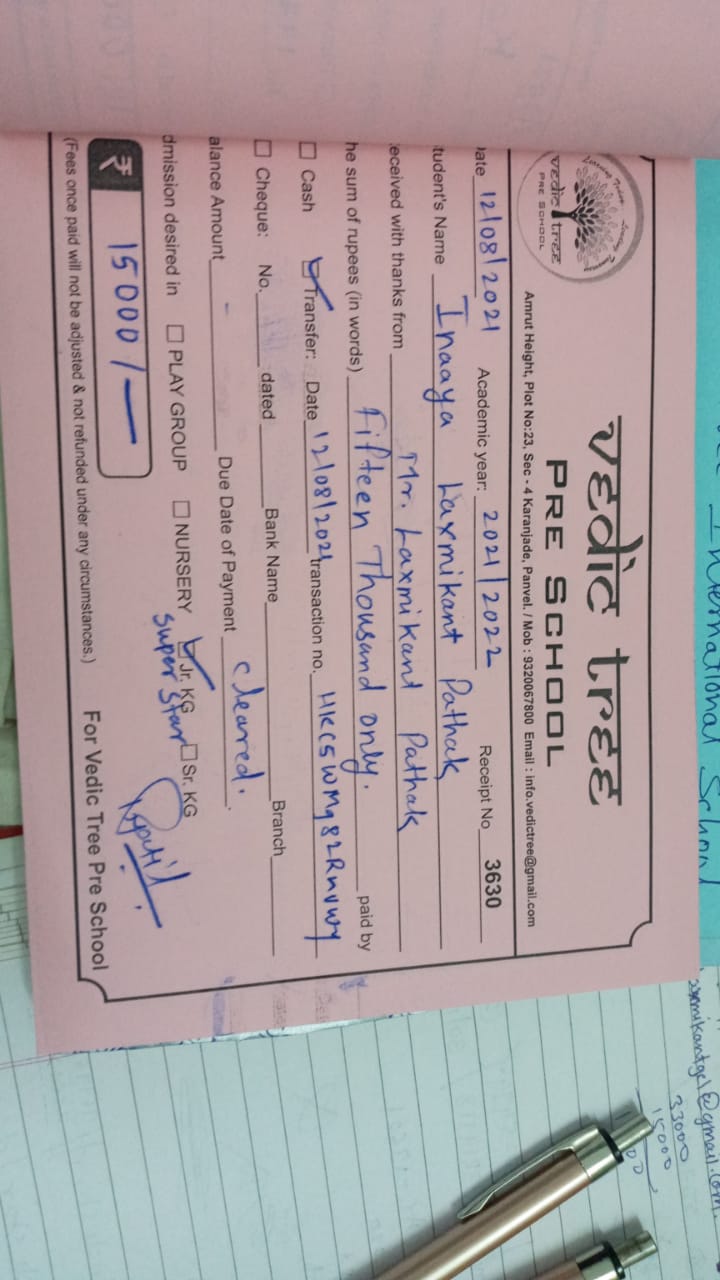 vedic tree
PRE SCHOOL
vedic tree
PRE SCHOOL
Amrut Height, Plot No:23, Sec - 4 Karanjade, Panvel. / Mob : 9320067800 Email : info.vedictree@gmail.com
ate 12/08/2021 Academic year: 2021/2022 Receipt No 3630
tudent's Name Inaaya Laxmikant Pathak
eceived with thanks from Mr. Laxmikant Pathak
he sum of rupees (in words) Fifteen Thousand only. paid by
Cash Transfer: Date 12/08/2021 transaction no.
Cheque: No. dated Bank Name Branch
alance Amount - Due Date of Payment cleared.
dmission desired in PLAY GROUP NURSERY Jr. KG Sr. KG
Super Star
₹ 15000/-
(Fees once paid will not be adjusted & not refunded under any circumstances.) For Vedic Tree Pre School
International School
@gmail.com
33000
15000